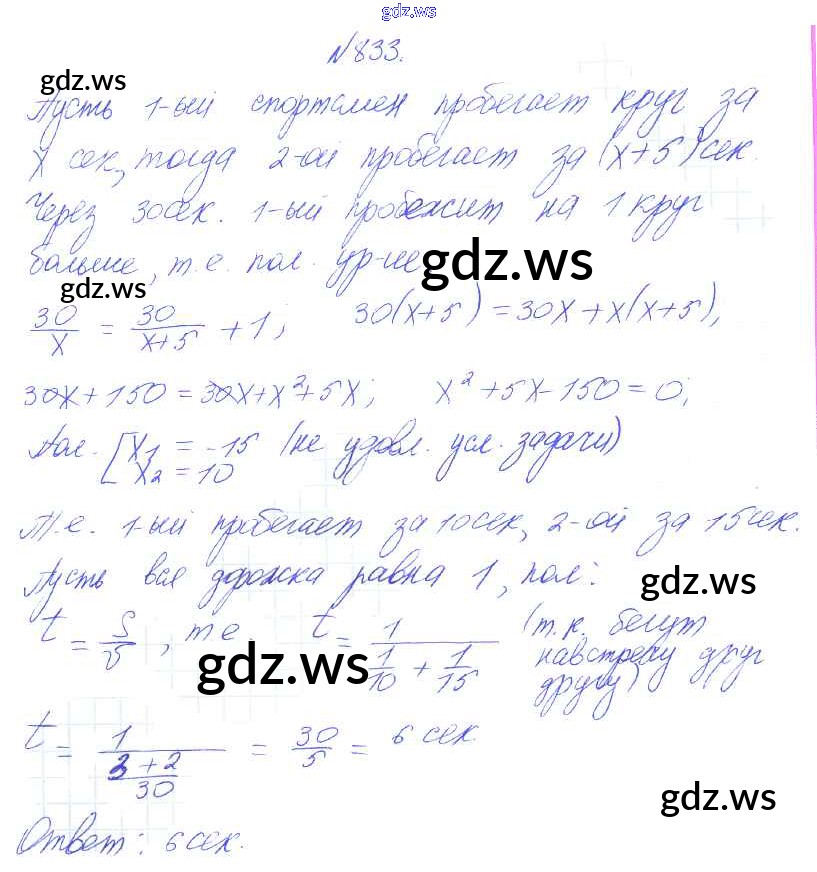 gdz.ws
№833.
gdz.ws
Пусть 1-ый спортсмен пробегает круг за
x сек, тогда 2-ой пробегает за (x+5) сек.
Через 30 сек. 1-ый пробежит на 1 круг
больше, т.е. пол. ур-ие
gdz.ws
gdz.ws
30/x = 30/(x+5) + 1; 30(x+5) = 30x + x(x+5),
30x + 150 = 30x + x² + 5x; x² + 5x - 150 = 0;
Пол. [x₁ = -15 (не удовл. усл. задачи)
x₂ = 10
Т.е. 1-ый пробегает за 10 сек, 2-ой за 15 сек.
Пусть вся дорожка равна 1, пол:
gdz.ws
t = S/v, т.е. t = 1/(1/10 + 1/15) (т.к. бегут
навстречу друг
другу)
gdz.ws
t = 1/((3+2)/30) = 30/5 = 6 сек
gdz.ws
Ответ: 6 сек.